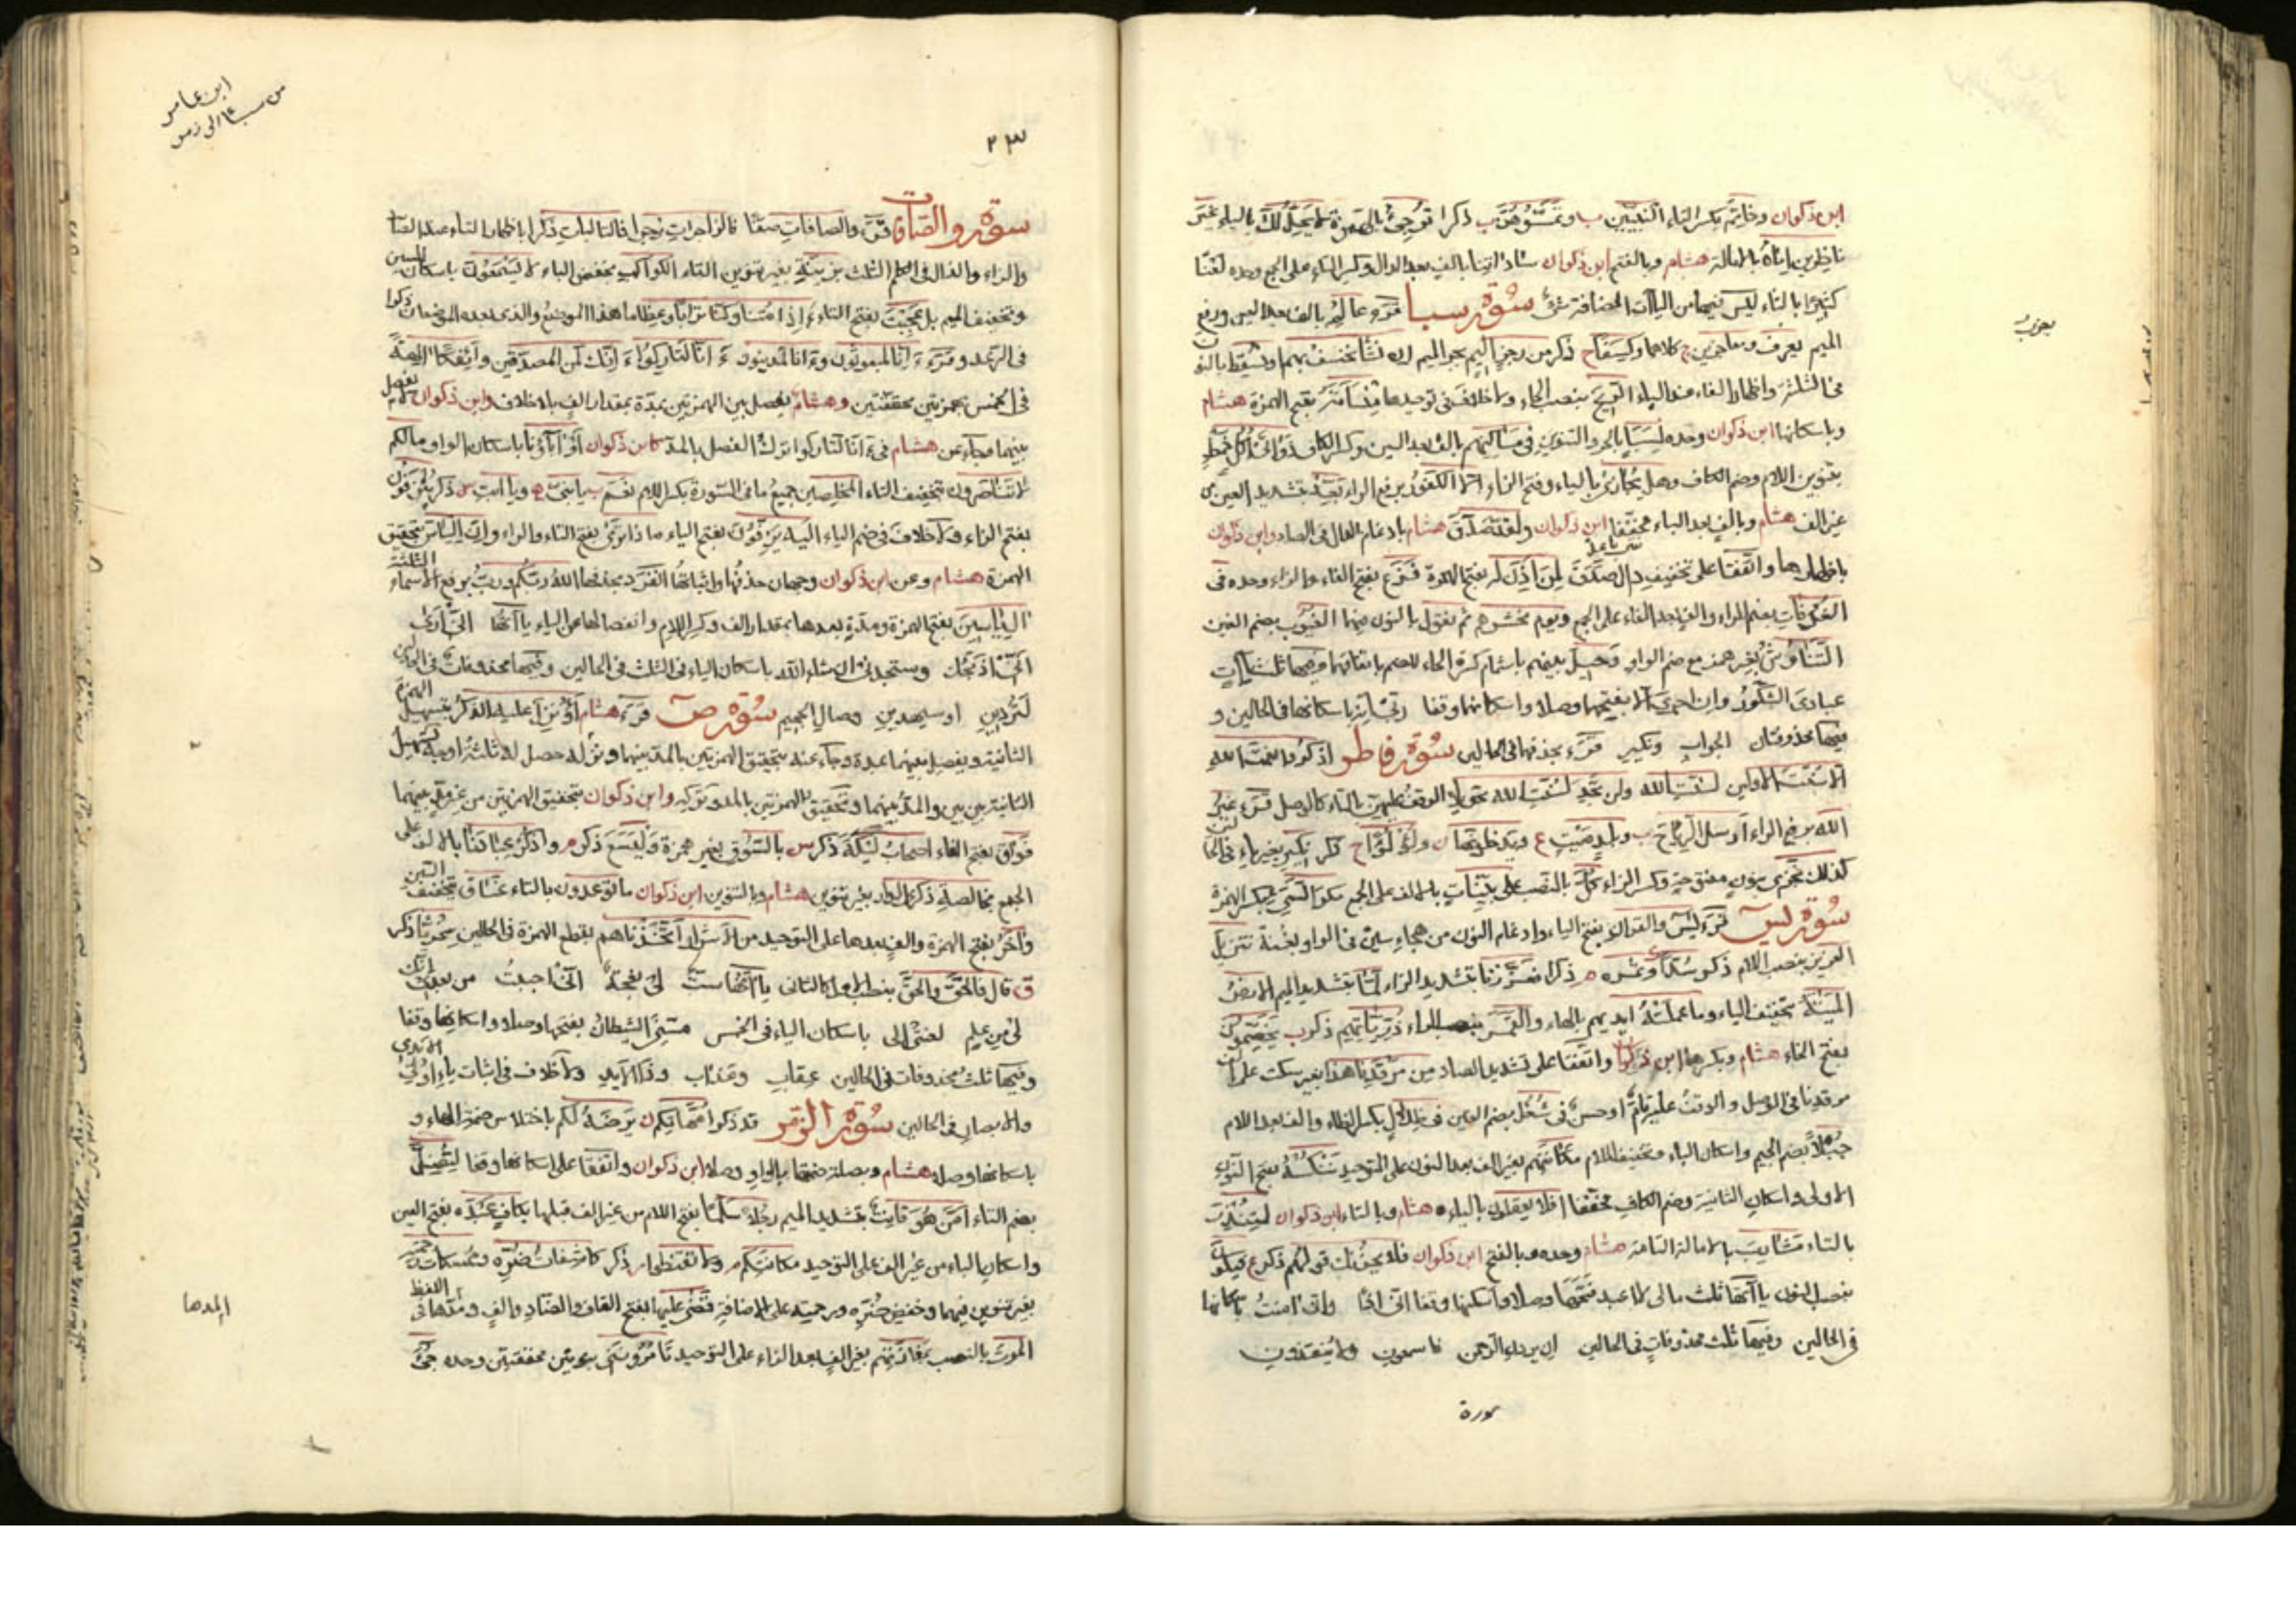 ابن ذكوان وخاتم بكسر التاء النبيين ب وتمسّوهنّ ب ذكرا ترجئ بالهمزة لا يحلّ لك بالياء غير
ناظرين إناه بالامالة هشام وبالفتح ابن ذكوان ساداتنا بالف بعد الدال وكسر التاء على الجمع وحده لعنا
كثيرا بالثاء ليس فيها من الياآت المضافة شئ سورة سبا قرء عالم بالف بعد العين ورفع
الميم يعزب ومعاجزين كلاهما وكسفا ح ذكر من رجز اليم بجر الميم ان نشأ نخسف بهم او نسقط بالنون
فى الثلثة واظهار الفاء عند الباء الريح بنصب الحاء ولا خلاف فى توحيدها منسأته بفتح الهمزة هشام
وباسكانها ابن ذكوان وحده لسبا بالجر والتنوين فى مساكنهم بالف بعد السين وكسر الكاف ذواتى اكل خمط
بتنوين اللام وضم الكاف وهل يجازى بالياء وفتح الزاء الا الكفور برفع الراء بعّد بتشديد العين من
غير الف هشام وبالف بعد الباء مخففا ابن ذكوان ولقد صدق هشام بادغام الدال فى الصاد وابن ذكوان
باظهارها واتفقا على تخفيف دال صدق لمن اذن له بفتح الهمزة فزع بفتح الفاء والزاء وحده فى
الغرفات بضم الراء والف بعد الفاء على الجمع ويوم نحشرهم ثم نقول بالنون فيهما الغيوب بضم الغين
التناوش بغير همز مع ضم الواو وحيل بينهم باشمام كسرة الحاء للضم باتفاقهما وفيها ثلث ياآت
عبادى الشكور وان اجرى الا بفتحهما وصلا واسكانهما وقفا ربى انه باسكانها فى الحالين و
فيها محذوفتان الجواب ونكير قرء بحذفهما فى الحالين سورة فاطر اذكروا نعمت الله
الا سنت الاولين لسنت الله ولن تجد لسنت الله تحويلا الوقف عليهن بالتاء كالوصل قرء غير
الله برفع الراء ارسل الرياح ب وبلد ميت ع ويدخلونها ن ولؤلؤ ح ذكر نكير بغير ياء فى الحالين
كذلك نجزى بنون مفتوحة وكسر الزاء كلّ بالنصب على بينات بالالف على الجمع مكر السيئ بكسر الهمزة
سورة يس قرء يس والقران بفتح الياء وادغام النون من هجاء سين فى الواو بغنة تنزيل
العزيز بنصب اللام ذكر سدا وثمره م ذكرا فعززنا بتشديد الزاء لما بتشديد الميم الارض
الميتة بتخفيف الياء وما عملته ايديهم بالهاء والقمر بنصب الراء ذرياتهم ذكر ب يخصمون
بفتح الخاء هشام وبكسرها ابن ذكوان واتفقا على تشديد الصاد من مرقدنا هذا بغير سكت على الف
مرقدنا فى الوصل والوقف عليه تام او حسن فى شغل بضم الغين فى ظلال بكسر الظاء والف بعد اللام
جبلا بضم الجيم واسكان الباء وتخفيف اللام مكانتهم بغير الف بعد النون على التوحيد ننكسه بفتح النون
الاولى واسكان الثانية وضم الكاف مخففا افلا يعقلون بالياء هشام وبالتاء ابن ذكوان لتنذر
بالتاء مشارب بالامالة التامة هشام وحده وبالفتح ابن ذكوان فلا يحزنك قولهم ذكر ع فيكون
بنصب النون ياآتها ثلث مالى لا اعبد فتحها وصلا واسكنها وقفا انى اذا وانى امنت باسكانها
فى الحالين وفيها ثلث محذوفات فى الحالين ان يردن الرحمن فاسمعون ولا ينقذون
سورة
يعزب
ابن عامر
من سبا الى زمر
٢٣
سورة والصافات قرء والصافات صفا فالزاجرات زجرا فالتاليات ذكرا باظهار التاء عند الصاد
والزاء والذال فى الكلم الثلث بزينة بغير تنوين التاء الكواكب بخفض الباء لا يسمعون باسكان السين
وتخفيف الميم بل عجبت بفتح التاء ءاذا متنا وكنا ترابا وعظاما هذا الموضع والذى بعده الموضعان ذكرا
فى الرعد وقرء ءانا لمبعوثون وءانا لمدينون ءانا لتاركوا ءانك لمن المصدقين وائفكا الهة
فى الخمس بهمزتين محققتين وهشام يفصل بين الهمزتين بمدة بمقدار الف بلا خلاف وابن ذكوان لم يفصل
بينهما وجاء عن هشام فى ءانا لتاركوا ترك الفصل بالمد كابن ذكوان او آباؤنا باسكان الواو مالكم
لا تناصرون بتخفيف التاء المخلصين جميع ما فى السورة بكسر اللام نعم ب يا بنىّ ه ويا ابت س ذكر ينزفون
بفتح الزاء ولا خلاف فى ضم الياء اليه يزفون بفتح الياء ماذا ترى بفتح التاء والراء وان الياس بتحقيق
الهمزة هشام وعن ابن ذكوان وجهان حذفها واثباتها الله ربكم ورب برفع الاسماء الثلثة
ال ياسين بفتح الهمزة ومدة بعدها بمقدار الف وكسر اللام وانفصالها عن الياء ياآتها انى ارى
انى اذبحك وستجدنى ان شاء الله باسكان الياء فى الثلث فى الحالين وفيها محذوفات فى الحالين
لتردين او سيهدين وصال الجحيم سورة ص قرء هشام اؤنزل عليه الذكر بتسهيل الهمزة
الثانية ويفصل بينهما بمدة وجاء عنه بتحقيق الهمزتين بالمد بينهما وتركه حصل له ثلثة اوجه تسهيل
الثانية بين بين والمد بينهما وتحقيق الهمزتين بالمد وتركه وابن ذكوان بتحقيق الهمزتين من غير مد بينهما
فواق بفتح الفاء اصحاب ليكة ذكر س بالسوق بغير همزة وليسع ذكر م واذكر عبادنا بالالف على
الجمع بخالصة ذكرى الدار بغير تنوين هشام وبالتنوين ابن ذكوان ما توعدون بالتاء غساق بتخفيف السين
وآخر بفتح الهمزة والف بعدها على التوحيد من الاشرار اتخذناهم بقطع الهمزة فى الحالين سخريا ذكر
ق قال فالحق والحق بنصب الاول كالثانى ياآتها ست لى نعجة انى احببت من بعدى انك
لى من علم لعنتى الى باسكان الياء فى الخمس مسنى الشيطان بفتحها وصلا واسكانها وقفا
وفيها ثلث محذوفات فى الحالين عقاب وعذاب وذا الايد ولا خلاف فى اثبات ياء اولى الايدى
والابصار فى الحالين سورة الزمر قد ذكر امهاتكم ن يرضه لكم باختلاس ضمة الهاء و
باسكانها وصلا هشام وبصلة ضمها بالواو وصلا ابن ذكوان واتفقا على اسكانها وقفا ليضل
بضم الياء امّن هو قانت بتشديد الميم رجلا سلما بفتح اللام من غير الف قبلها بكاف عبده بفتح العين
واسكان الباء من غير الف على التوحيد مكانتكم م ولا تقنطوا ر ذكر كاشفات ضره وممسكات رحمته
بغير تنوين فيهما وخفض ضره ورحمته على الاضافة قضى عليها بفتح القاف والضاد والف ومدها فى اللفظ
الموت بالنصب بمفازتهم بغير الف بعد الزاء على التوحيد تامروننى بنونين مخففتين وحده جئ
المدها